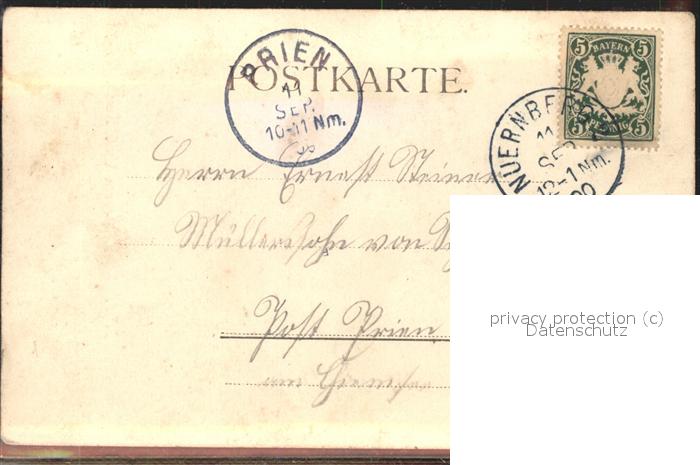 POSTKARTE.
PRIEN
11
SEP.
10-11 Nm.
BAYERN
5 5
5 5
NUERNBERG
11
SEP
12-1 Nm.
00
Herrn Ernst Steiner
Müllerssohn von
Post Prien
am Chiemsee
privacy protection (c)
Datenschutz